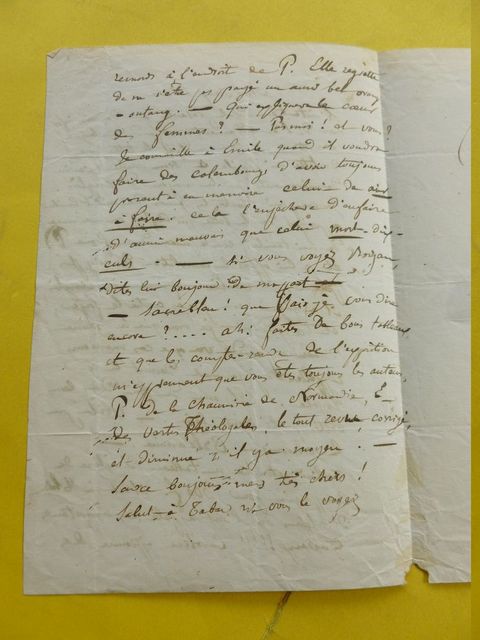 remords à l'endroit de P. Elle regrette
de ne s'être pas payé un aussi bel orang
-outang. — Qui expliquera le cœur
de femmes? — Pas moi! et vous?
Je conseille à Emile quand il voudra
faire des calembourgs d'avoir toujours
présent à sa mémoire celui de
à faire. cela l'empêchera d'en faire
d'aussi mauvais que celui
— Si vous voyez
dites lui bonjour de ma part
— Sacrebleu! que vais je vous dire
encore?.... ah! faites de bons tableaux
et que les compte-rendu de l'exposition
m'apprennent que vous êtes toujours les auteurs
P. de la Chaumière de Normandie, E
des Vertus Théologales, le tout revu corrigé,
et diminué s'il y a moyen! —
bonjours mes très chers!
Salut à Tabar si vous le voyez